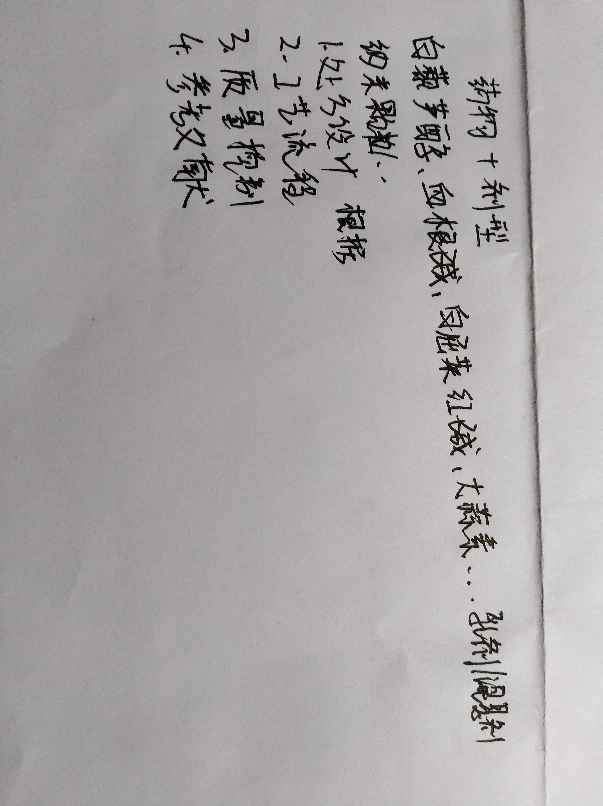 药物 + 剂型
白藜芦醇、血根碱、白屈菜红碱、大蒜素... 乳剂/混悬剂
纳米颗粒..
1.处方设计 根据
2.工艺流程
3.质量控制
4.参考文献